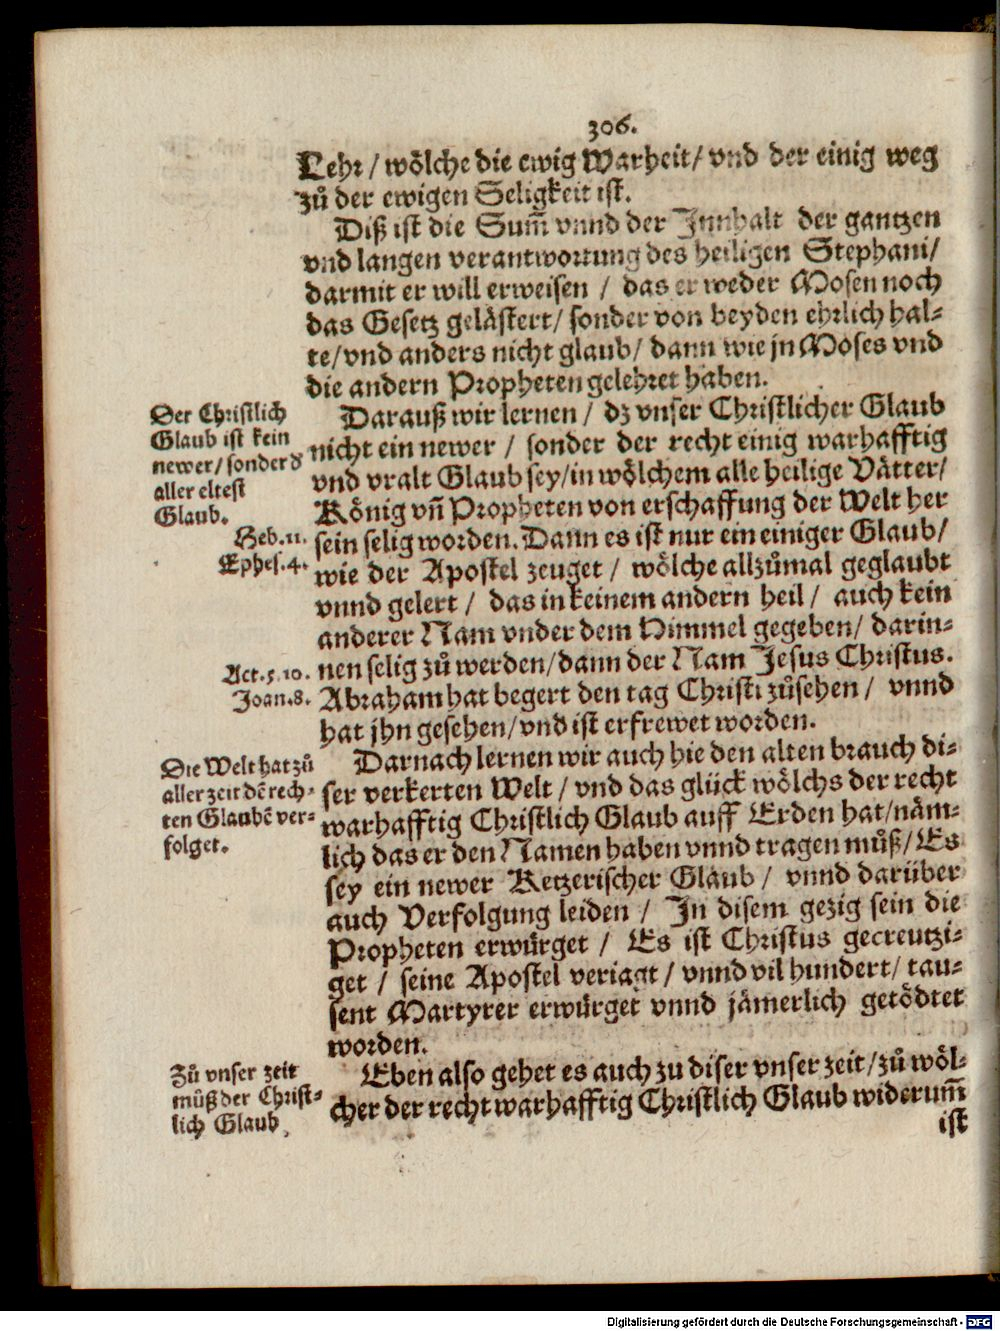 306.
Lehr / wölche die ewig Warheit / vnd der einig weg
zů der ewigen Seligkeit ist.
Diß ist die Sum̃ vnnd der Innhalt der gantzen
vnd langen verantwortung des heiligen Stephani /
darmit er will erweisen / das er weder Mosen noch
das Gesetz gelästert / sonder von beyden ehrlich hal-
te / vnd anders nicht glaub / dann wie jn Moses vnd
die andern Propheten gelehret haben.
Der Christlich
Glaub ist kein
newer / sonder d
aller eltest
Glaub.
Darauß wir lernen / dz vnser Christlicher Glaub
nicht ein newer / sonder der recht einig warhafftig
vnd vralt Glaub sey / in wölchem alle heilige Vätter /
König vñ Propheten von erschaffung der Welt her
Heb. 11.
sein selig worden. Dann es ist nur ein einiger Glaub /
Ephes. 4.
wie der Apostel zeuget / wölche allzůmal geglaubt
vnnd gelert / das in keinem andern heil / auch kein
anderer Nam vnder dem Himmel gegeben / darin-
Act. 5. 10.
nen selig zů werden / dann der Nam Jesus Christus.
Joan. 8.
Abraham hat begert den tag Christi zůsehen / vnnd
hat jhn gesehen / vnd ist erfrewet worden.
Die Welt hat zů
aller zeit dẽ rech-
ten Glaubẽ ver-
folget.
Darnach lernen wir auch hie den alten brauch di-
ser verkerten Welt / vnd das glück wölchs der recht
warhafftig Christlich Glaub auff Erden hat / näm-
lich das er den Namen haben vnnd tragen můß / Es
sey ein newer Ketzerischer Glaub / vnnd darüber
auch Verfolgung leiden / In disem gezig sein die
Propheten erwürget / Es ist Christus gecreutzi-
get / seine Apostel veriagt / vnnd vil hundert / tau-
sent Martyrer erwürget vnnd jämerlich getödtet
worden.
Zů vnser zeit
můß der Christ-
lich Glaub
Eben also gehet es auch zu diser vnser zeit / zů wöl-
cher der recht warhafftig Christlich Glaub widerum̃
ist
Digitalisierung gefördert durch die Deutsche Forschungsgemeinschaft - DFG